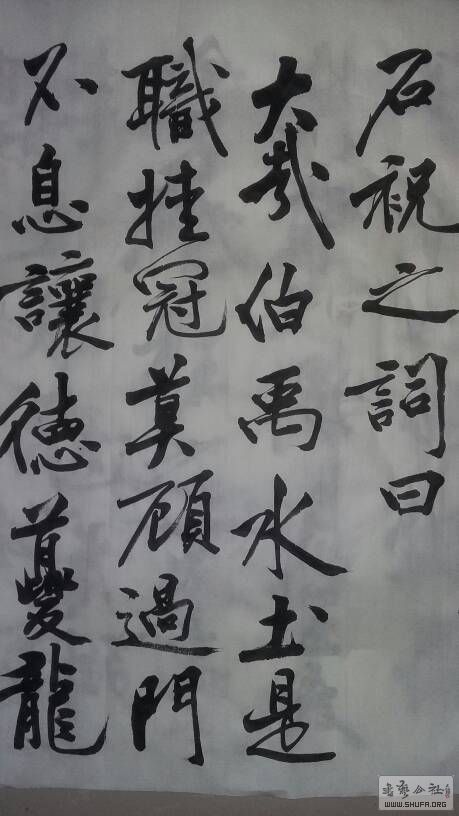 石祝之詞曰
大哉伯禹水土是
職挂冠莫顧過門
不息讓德夔龍
WWW.SHUFA.ORG